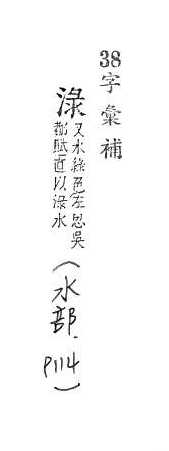 38字彙補
淥
又水綠色左思吳
都賦直以淥水
(水部.P114)